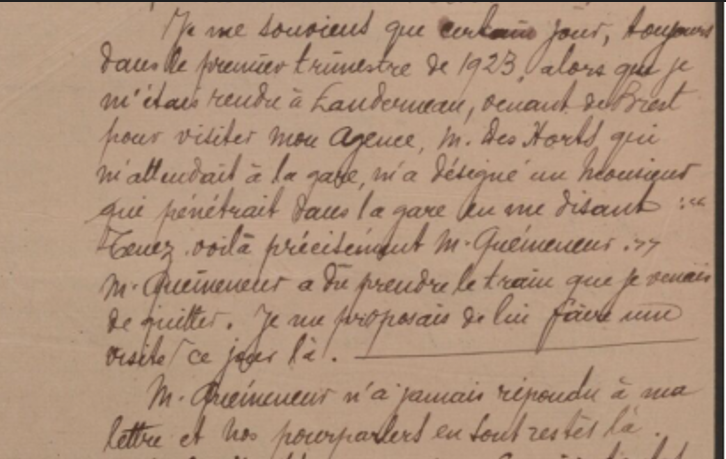 Je me souviens que certain jour, toujours
dans le premier trimestre de 1923, alors que je
m'étais rendu à Landerneau, venant de Brest
pour visiter mon Agence, M. des Horts, qui
m'attendait à la gare, m'a désigné un Monsieur
qui pénétrait dans la gare en me disant : "
Tenez voilà précisément M. Quémeneur . »
M. Quémeneur a dû prendre le train que je venais
de quitter. Je me proposais de lui faire une
visite ce jour là.
M. Quémeneur n'a jamais répondu à ma
lettre et nos pourparlers en sont restés là.